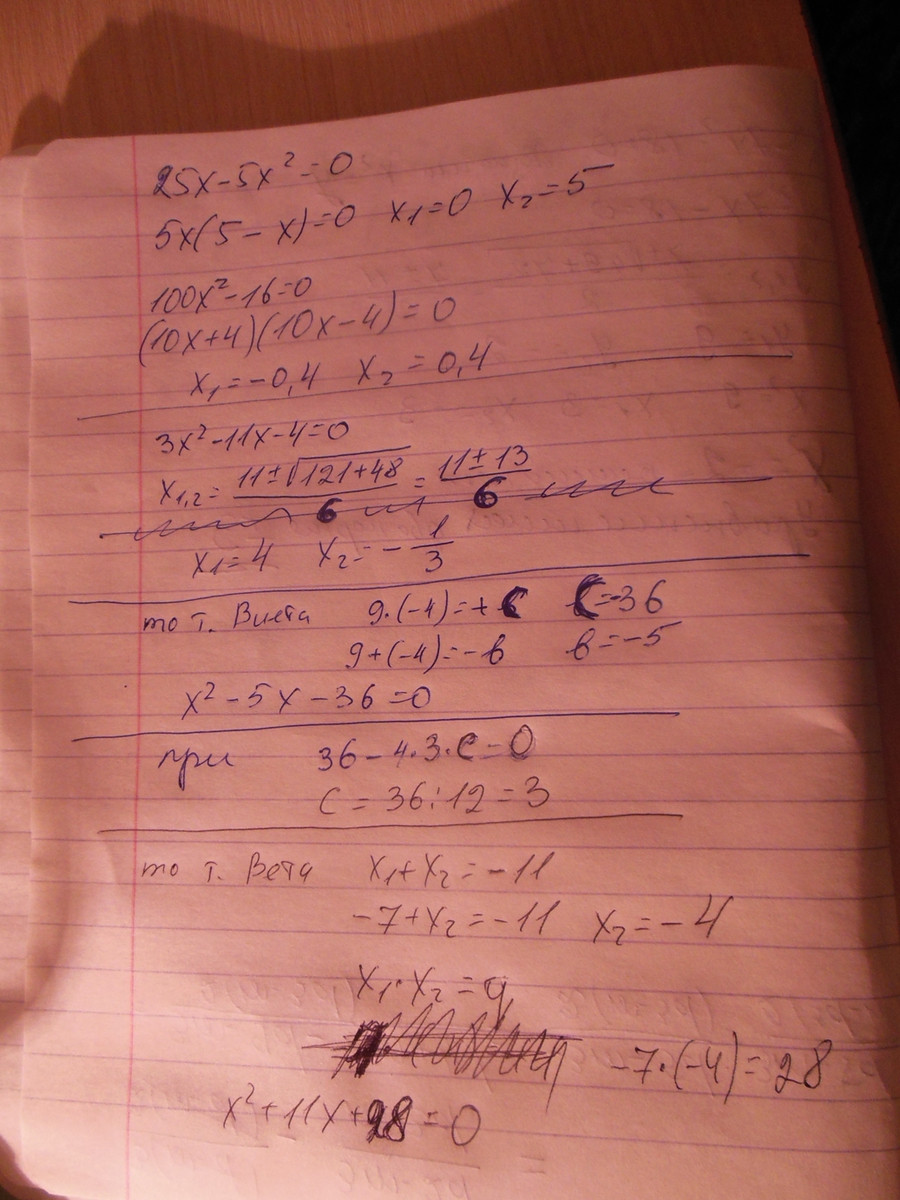 25x-5x²=0
5x(5-x)=0 x₁=0 x₂=5
100x²-16=0
(10x+4)(10x-4)=0
x₁=-0,4 x₂=0,4
3x²-11x-4=0
x₁,₂=(11±√(121+48))/6=(11±13)/6
x₁=4 x₂=-1/3
по т. Виета 9·(-4)=+c c=-36
9+(-4)=-b b=-5
x²-5x-36=0
при 36-4·3·c=0
c=36:12=3
по т. Вета x₁+x₂=-11
-7+x₂=-11 x₂=-4
x₁·x₂=q
-7·(-4)=28
x²+11x+28=0